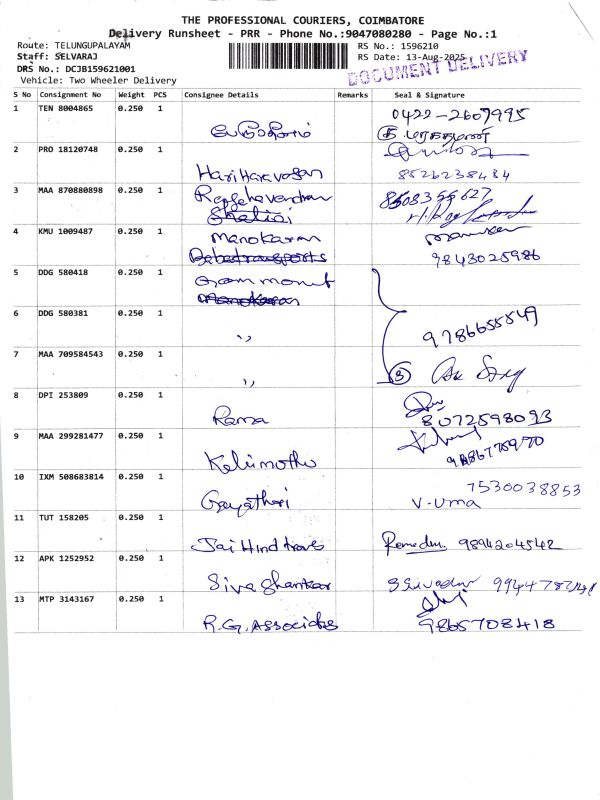 THE PROFESSIONAL COURIERS, COIMBATORE
Delivery Runsheet - PRR - Phone No.:9047080280 - Page No.:1
Route: TELUNGUPALAYAM RS No.: 1596210
Staff: SELVARAJ RS Date: 13-Aug-2025
DRS No.: DCJB159621001
DOCUMENT DELIVERY
Vehicle: Two Wheeler Delivery
S No Consignment No Weight PCS Consignee Details Remarks Seal & Signature
1 TEN 8004865 0.250 1 0422-2607995
2 PRO 18120748 0.250 1
Hariharavasan 8526238484
3 MAA 870880898 0.250 1 Ragehavendran 8508355627
Shalini
4 KMU 1009487 0.250 1 Manokaran
Bebetransports 9843025986
5 DDG 580418 0.250 1 Grammont
Manokaran
6 DDG 580381 0.250 1
,, 9786655549
7 MAA 709584543 0.250 1
,, 3
8 DPI 253809 0.250 1
Rama 8072598093
9 MAA 299281477 0.250 1
Kalimothu
10 IXM 508683814 0.250 1 7530038853
Gayathari V-Uma
11 TUT 158205 0.250 1
Jai Hind travs 9894204542
12 APK 1252952 0.250 1
Siva Shankar
13 MTP 3143167 0.250 1
R.G. Associates 9865708418